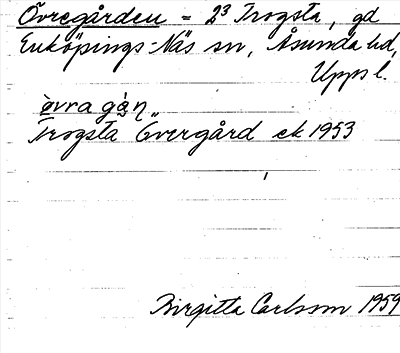 Övregården = 2³ Trogsta, gd
Enköpings-Näs sn, Åsunda hd,
Upps l.
òvra gàṇ
Trogsta Övergård ek 1953
Birgitta Carlsson 1959